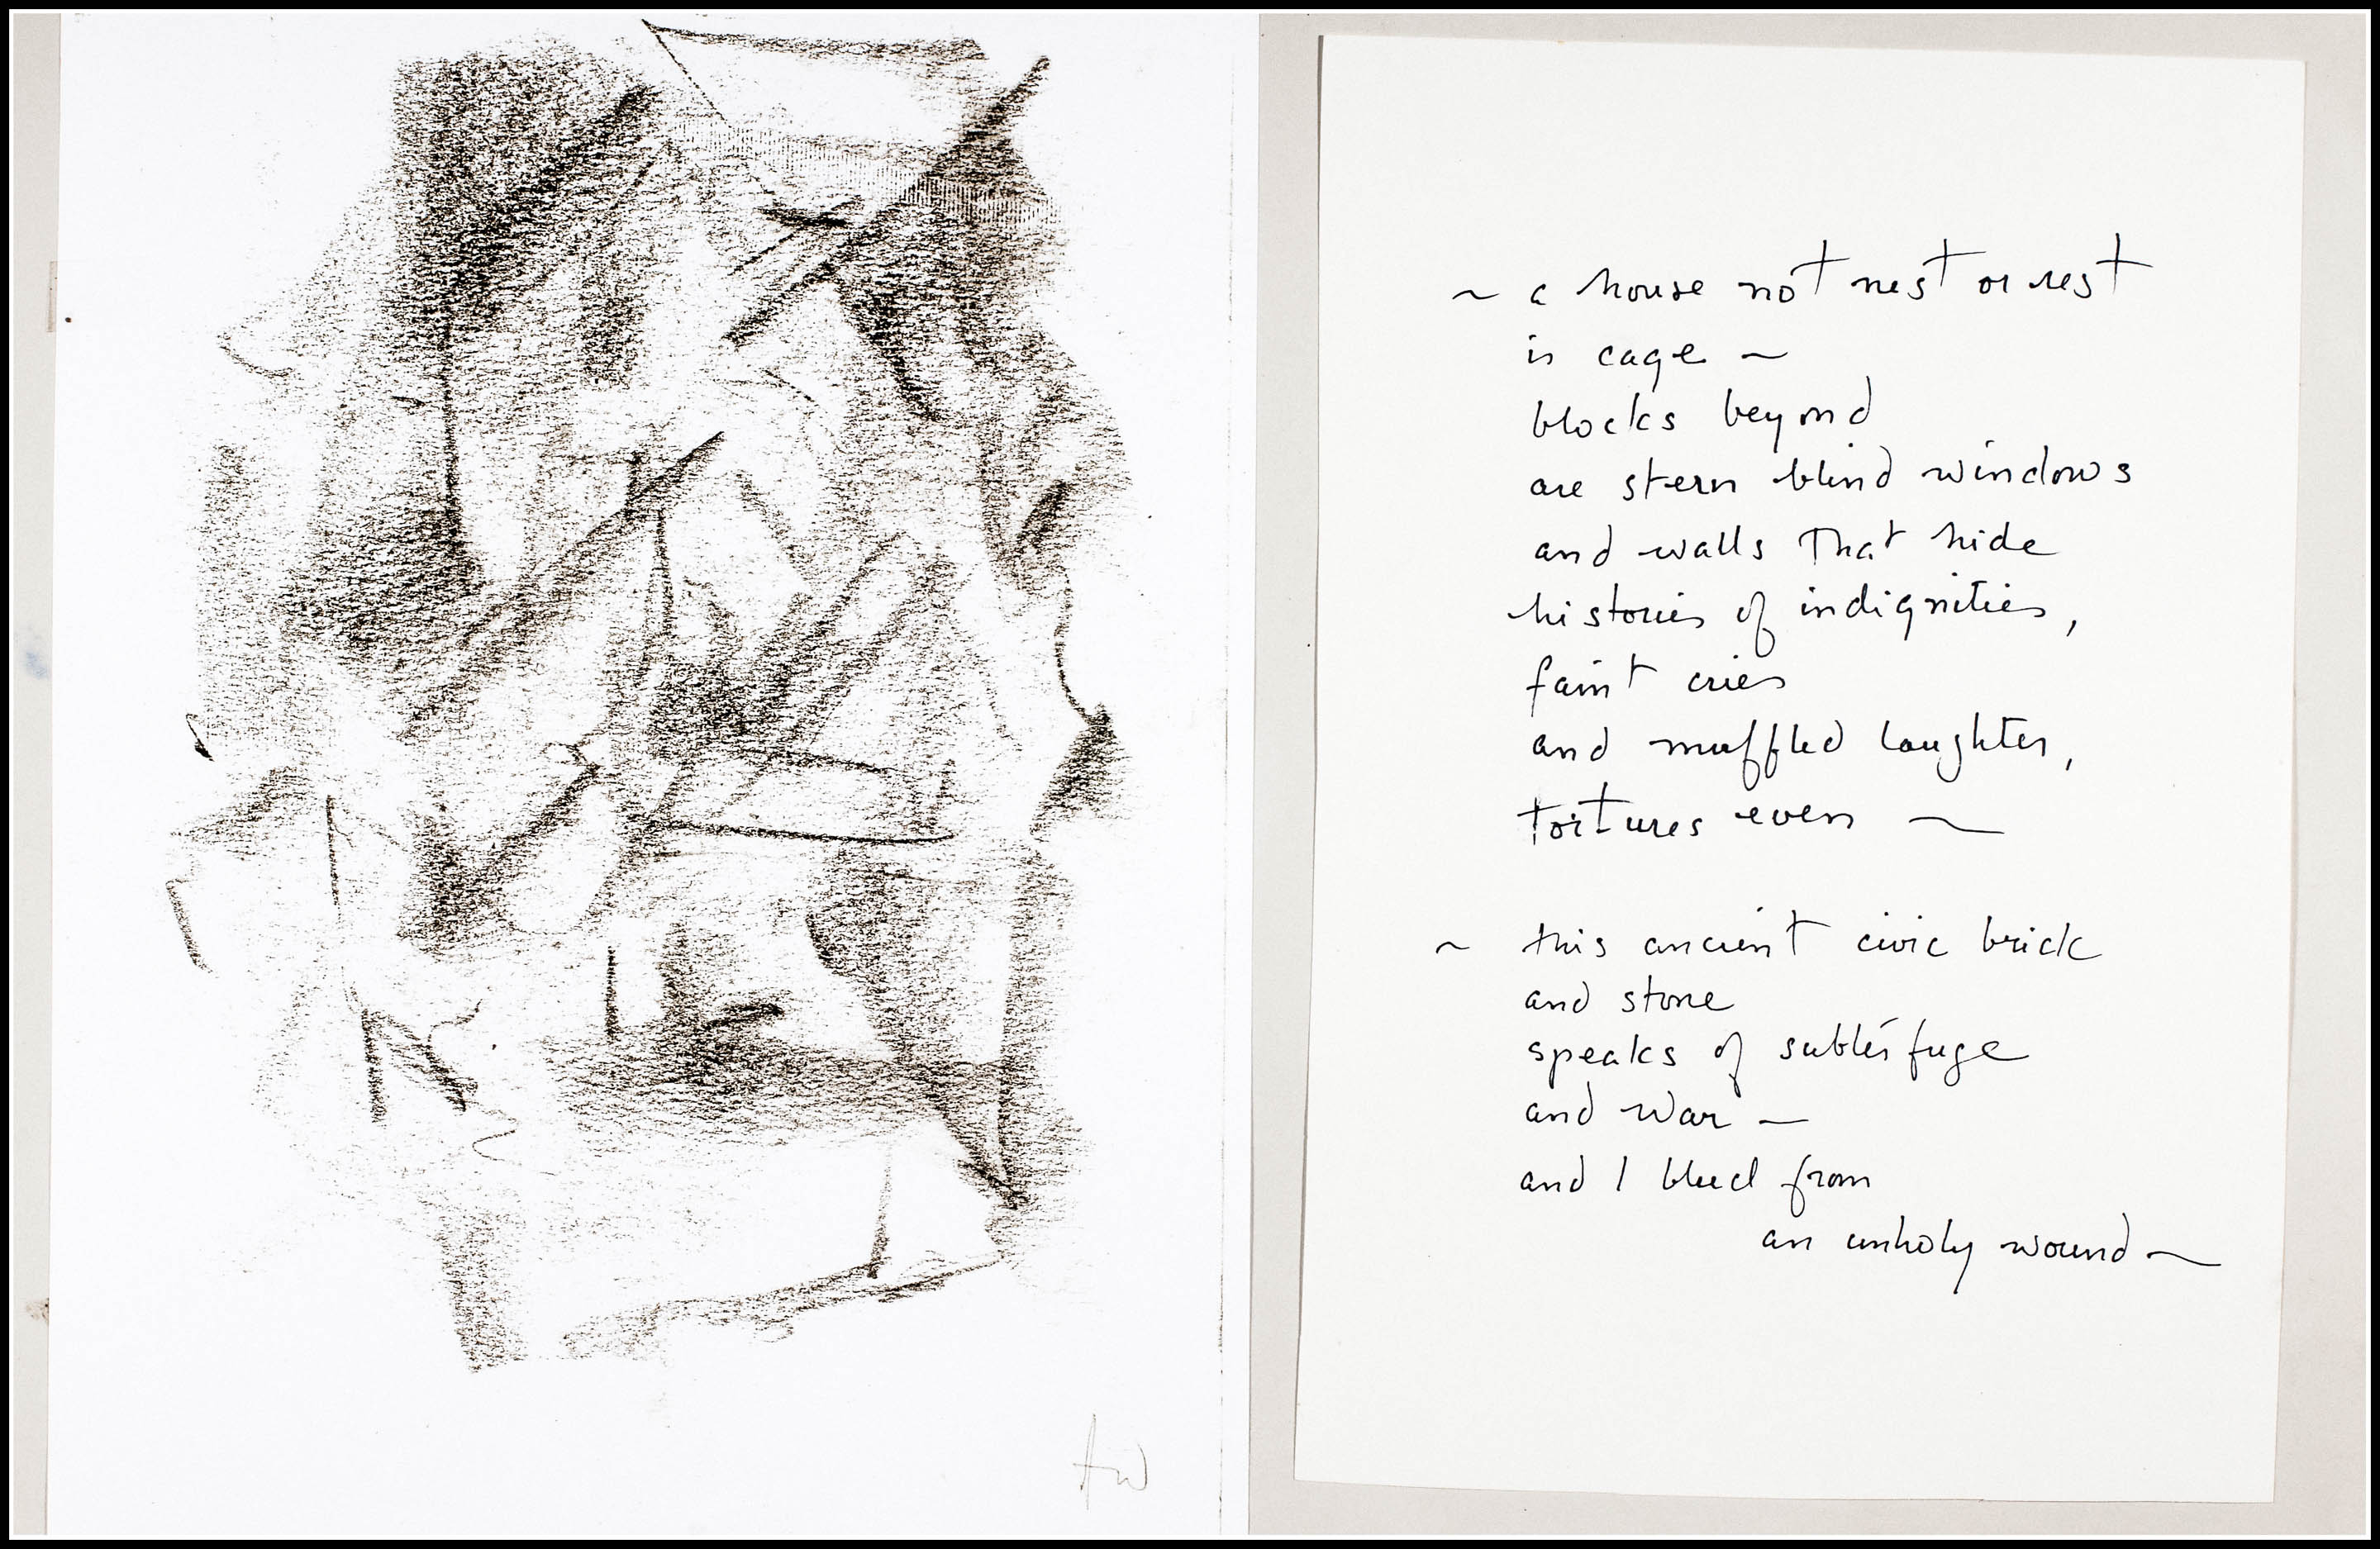 ~ a house not nest or rest
is cage ~
blocks beyond
are stern blind windows
and walls that hide
histories of indignities,
faint cries
and muffled laughter,
tortures even ~
~ this ancient civic brick
and stone
speaks of subterfuge
and war —
and I bleed from
an unholy wound ~
AW